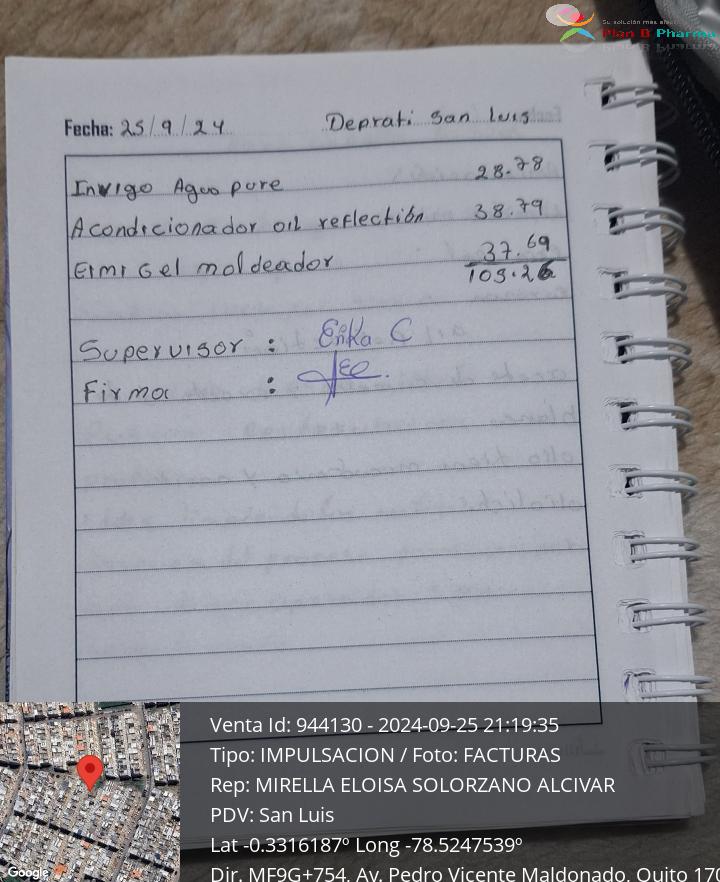 Su solución mas efectiva
Plan B Pharma
Fecha: 25/9/24 Deprati San Luis
Invigo Agua pure 28.78
Acondicionador oil reflection 38.79
Eimi Gel moldeador 37.69
105.26
Supervisor : Erika C
Firma :
Venta Id: 944130 - 2024-09-25 21:19:35
Tipo: IMPULSACION / Foto: FACTURAS
Rep: MIRELLA ELOISA SOLORZANO ALCIVAR
PDV: San Luis
Lat -0.3316187º Long -78.5247539º
Dir. MF9G+754, Av. Pedro Vicente Maldonado, Quito 170
Google